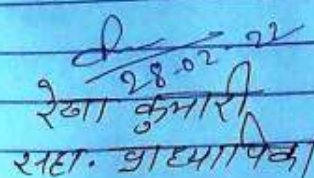 28.02.22
रेखा कुमारी
सहा. प्राध्यापिका